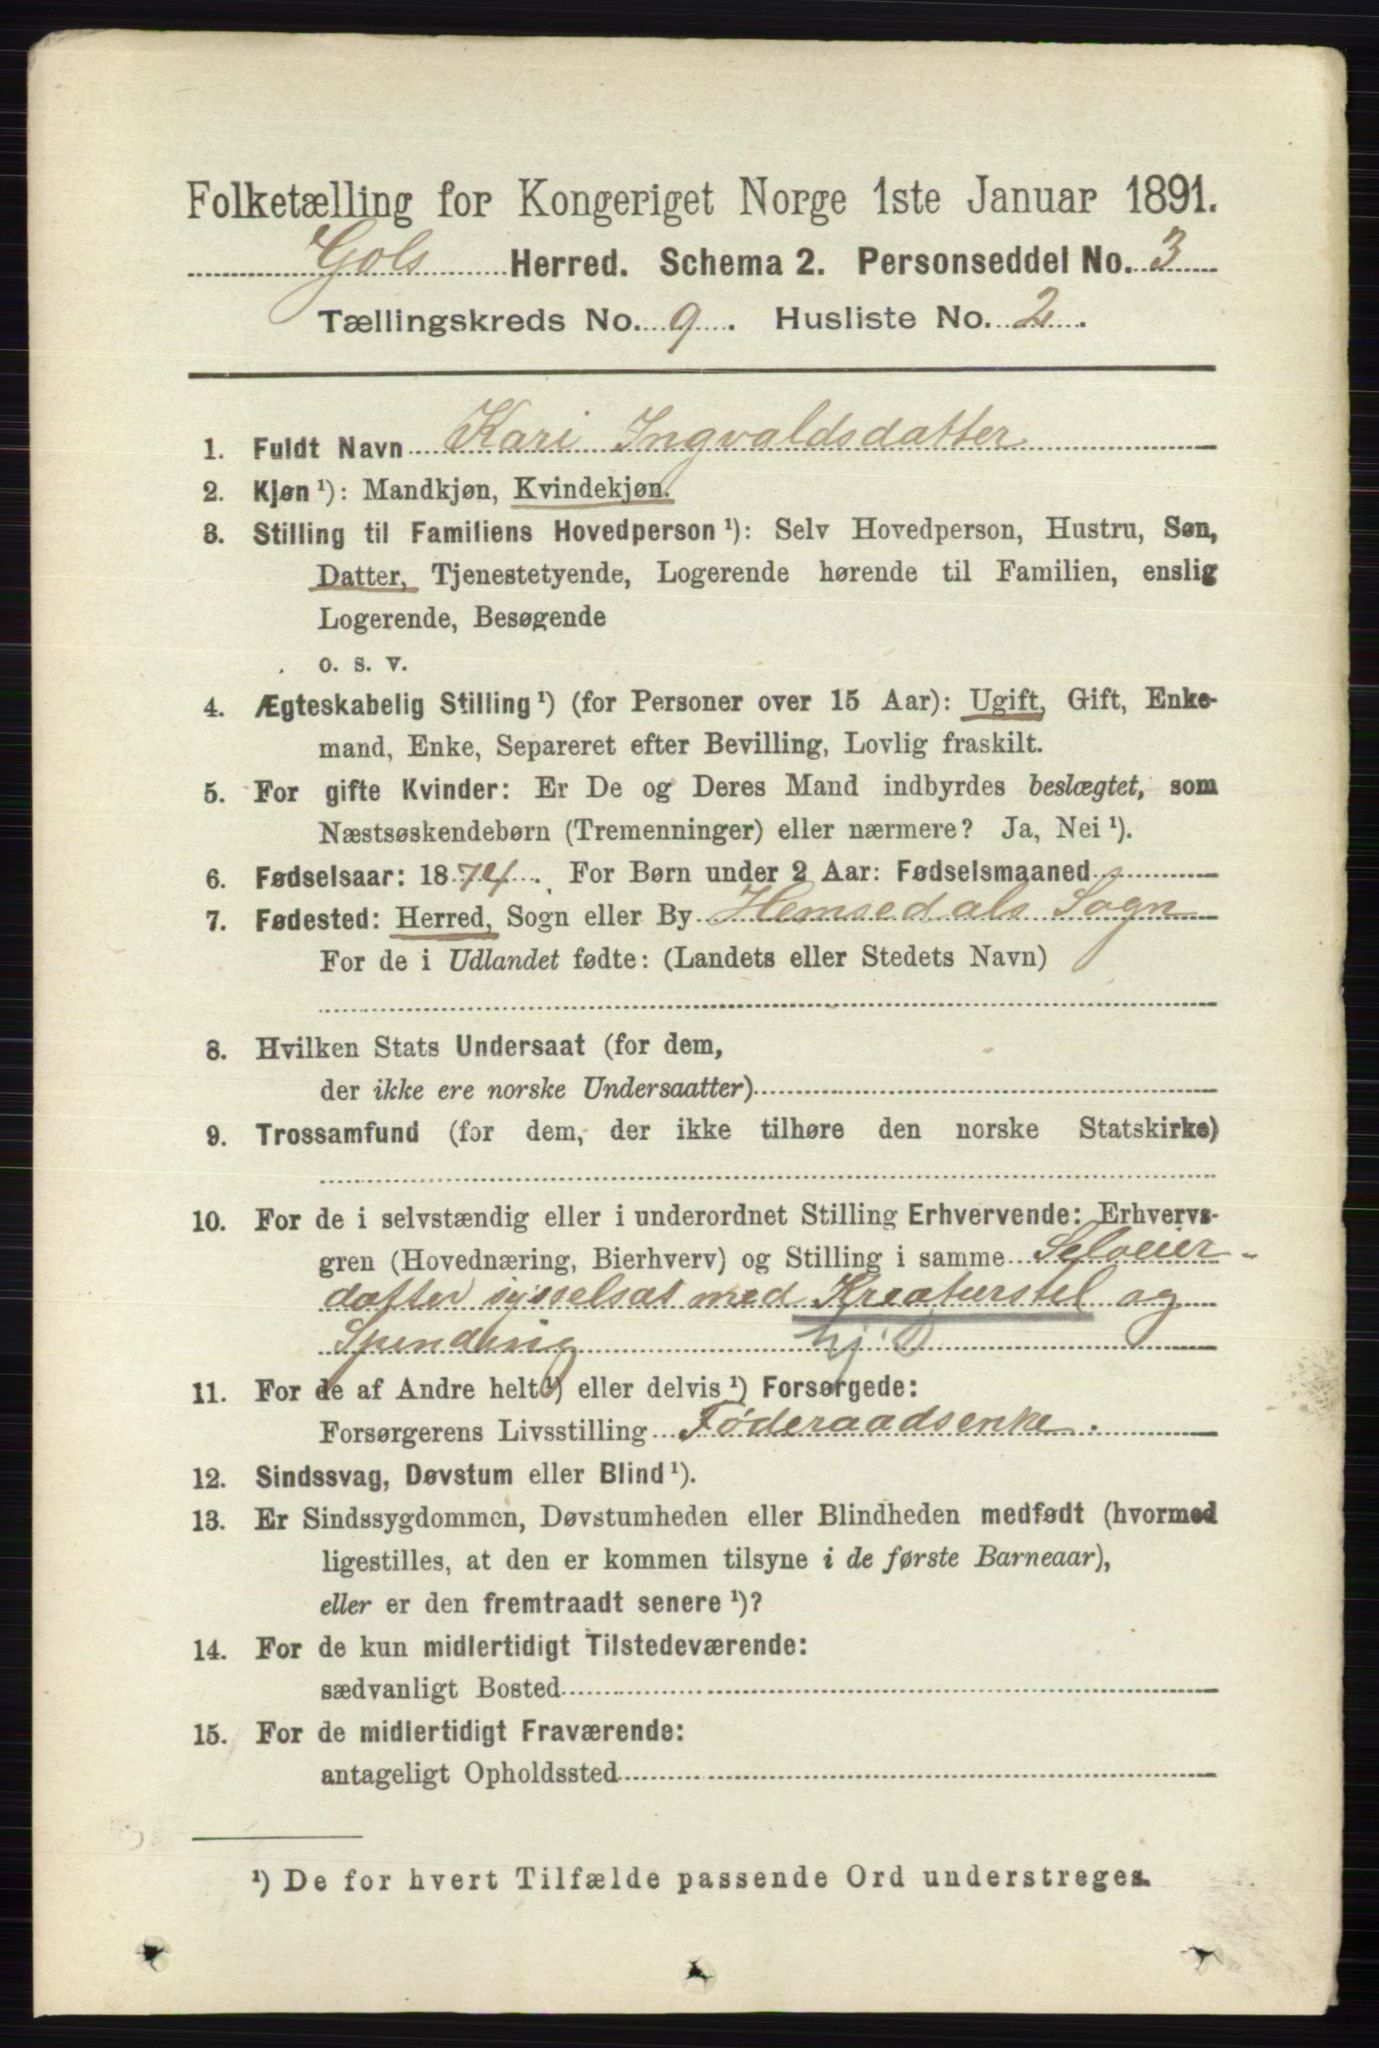 Folketælling for Kongeriget Norge 1ste Januar 1891.
Gols Herred. Schema 2. Personseddel No. 3
Tællingskreds No. 9. Husliste No. 2.
1. Fuldt Navn Kari Ingvaldsdatter
2. Kjøn ¹): Mandkjøn, Kvindekjøn.
3. Stilling til Familiens Hovedperson ¹): Selv Hovedperson, Hustru, Søn,
Datter, Tjenestetyende, Logerende hørende til Familien, enslig
Logerende, Besøgende
o. s. v.
4. Ægteskabelig Stilling ¹) (for Personer over 15 Aar): Ugift, Gift, Enke-
mand, Enke, Separeret efter Bevilling, Lovlig fraskilt.
5. For gifte Kvinder: Er De og Deres Mand indbyrdes beslægtet, som
Næstsøskendebørn (Tremenninger) eller nærmere? Ja, Nei ¹).
6. Fødselsaar: 1874. For Børn under 2 Aar: Fødselsmaaned
7. Fødested: Herred, Sogn eller By Hemsedals Sogn
For de i Udlandet fødte: (Landets eller Stedets Navn)
8. Hvilken Stats Undersaat (for dem,
der ikke ere norske Undersaatter)
9. Trossamfund (for dem, der ikke tilhøre den norske Statskirke)
10. For de i selvstændig eller i underordnet Stilling Erhvervende: Erhvervs-
gren (Hovednæring, Bierhverv) og Stilling i samme Selveier-
datter sysselsat med Kreaturstel og
Spinding hj. D
11. For de af Andre helt ¹) eller delvis ¹) Forsørgede:
Forsørgerens Livsstilling Føderaadsenke.
12. Sindssvag, Døvstum eller Blind ¹).
13. Er Sindssygdommen, Døvstumheden eller Blindheden medfødt (hvormed
ligestilles, at den er kommen tilsyne i de første Barneaar),
eller er den fremtraadt senere ¹)?
14. For de kun midlertidigt Tilstedeværende:
sædvanligt Bosted
15. For de midlertidigt Fraværende:
antageligt Opholdssted
¹) De for hvert Tilfælde passende Ord understreges.